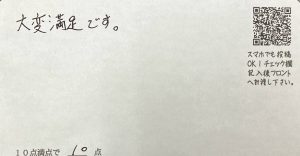 大変満足です。
スマホでも投稿
OK！チェック欄
記入後フロント
へお渡し下さい。
10点満点で 10 点